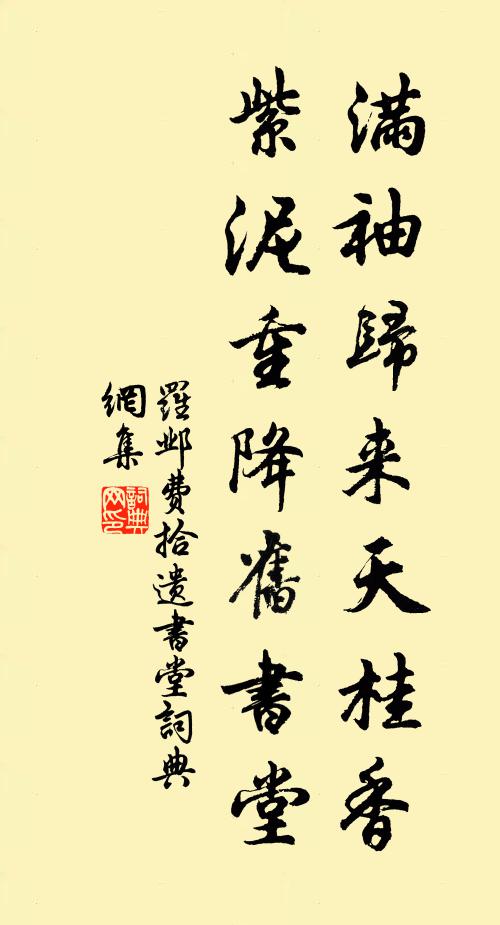 滿袖歸来天桂香
紫泥重降舊書堂
羅邺費拾遺書堂詞典
網集
詞典
网印